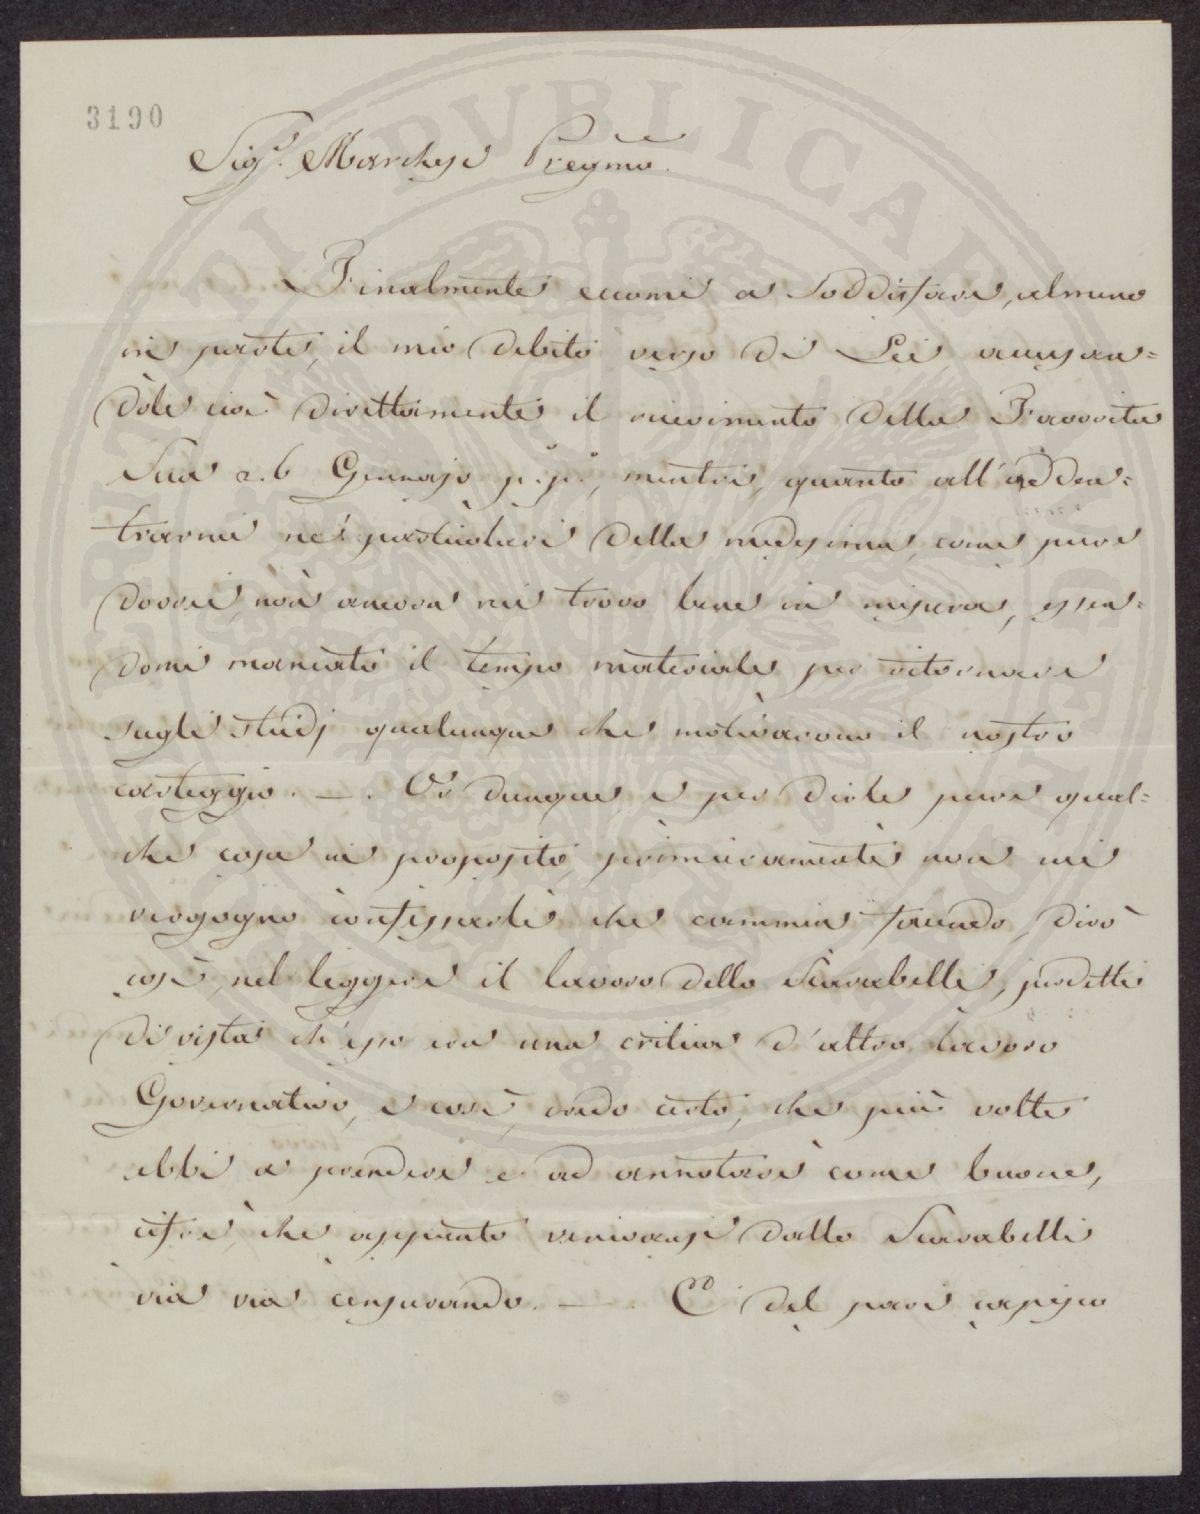 3190
Sigr. Marchese Pregmo.
Finalmente eccomi a soddisfare, almeno
in parte, il mio debito verso di Lei, accusan=
dole cioè direttamente il ricevimento della Favorita
Sua 26 Gennajo p.º p.º, mentre, quanto all'adden=
trarmi ne' particolari della medesima, come pure
dovrei, non ancora mi trovo bene in misura, essen=
domi mancato il tempo materiale per ritornare
sugli studj qualunque che motivarono il nostro
carteggio. —. Or dunque e per dirle pure qual=
che cosa in proposito, primieramente non mi
vergogno confessarle che cammin facendo, dirò
così, nel leggere il lavoro dello Scarabelli, perdetti
di vista ch'esso era una critica d'altro lavoro
Governativo, e così, credo certo, che più volte
ebbi a prendere e ad annotare come buone,
cifre che appunto venivansi dallo Scarabelli
via via censurando. —. Ed del pari capisco
PVBLICAE